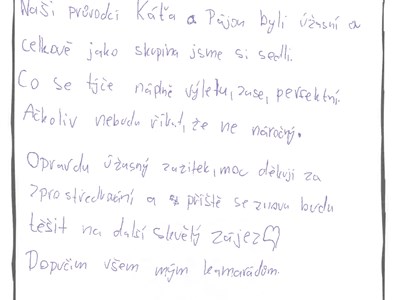 Naši průvodci Káťa a Půjou byli úžasní a
celkově jako skupina jsme si sedli.
Co se týče náplně výletu, zase, perfektní.
Ačkoliv nebudu říkat, že ne náročný.
Opravdu úžasný zážitek, moc děkuji za
zprostředkování a příště se znovu budu
těšit na další skvělý zájezd
Doporučím všem mým kamarádům.